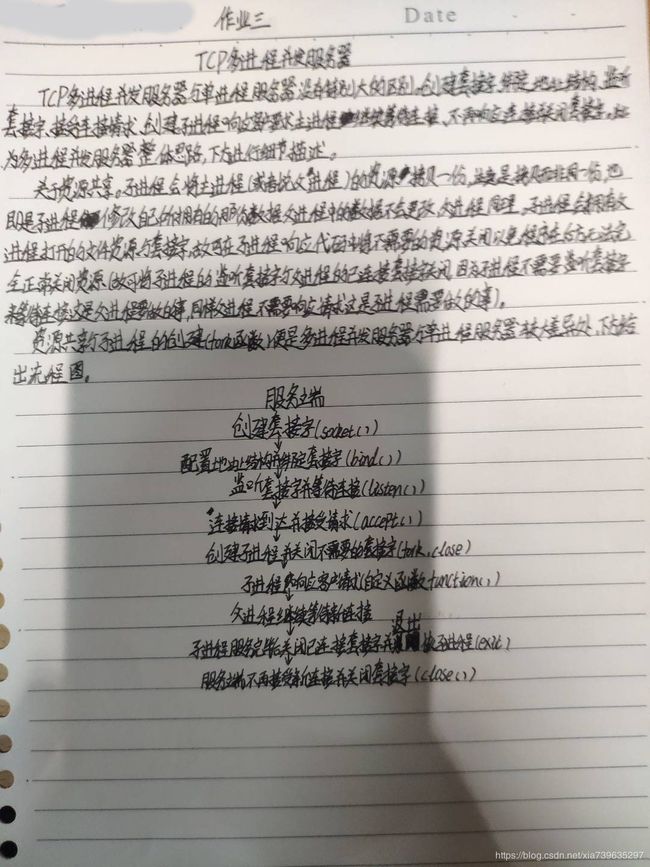 作业三
Date
TCP多进程并发服务器
TCP多进程并发服务器与单进程服务器没有特别大的区别。创建套接字、绑定地址结构、监听
套接字、接受连接请求、创建子进程响应 主进程继续等待连接、不再响应连接 关闭套接字。此
为多进程并发服务器整体思路,下方进行细节描述。
关于资源共享。子进程会将主进程(或者说父进程)的资源拷贝一份,这里是拷贝而非同一份,也
即是子进程修改自己所拥有的那份数据父进程中的数据不会更改,父进程同理。子进程会拥有父
进程打开的文件资源与套接字,故可在子进程响应代码中将不需要的资源关闭以免程序在后方无法完
全正常关闭资源(故可将子进程的监听套接字与父进程的已连接套接字关闭,因为子进程不需要监听套接字
来等待连接这是父进程要做的事,同样父进程不需要响应请求这是子进程需要做的事)。
资源共享与子进程的创建(fork函数)便是多进程并发服务器与单进程服务器较大差异处,下方给
出流程图。
服务端
创建套接字(socket())
配置地址结构并绑定套接字(bind())
监听套接字并等待连接(listen())
连接请求到达并接受请求(accept())
创建子进程并关闭不需要的套接字(fork,close)
子进程响应客户请求(自定义函数function())
父进程继续等待新连接
子进程服务完毕后关闭已连接套接字并退出 子进程(exit)
服务端不再接受新连接并关闭套接字(close())
https://blog.csdn.net/xia739635297